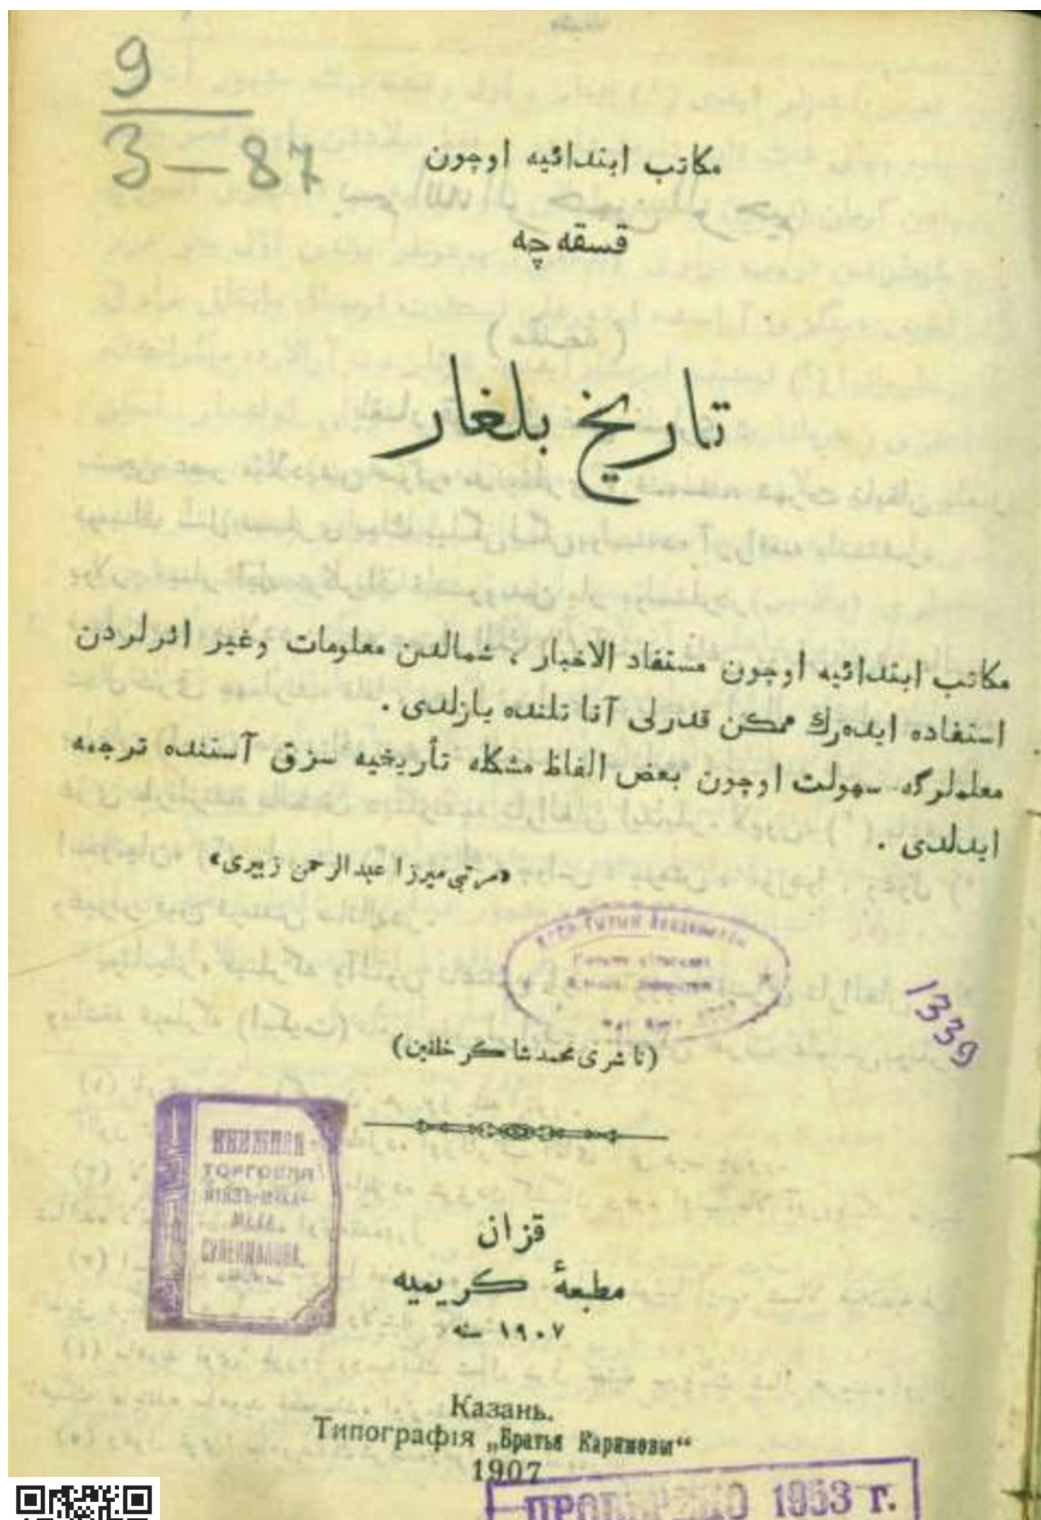 9
3—87
مكاتب ابتدائيه اوچون
قسقه‌چه
تاريخ بلغار
مكاتب ابتدائيه اوچون مستفاد الاخبار ، شمالدن معلومات وغير اثرلردن
استفاده ايدەرك ممكن قدرلى آنا تلنده يازلدى .
معلملرگه سهولت اوچون بعض الفاظ مشكله تأريخيه سزق آستنده ترجمه
ايدلدى .
«مرتبي ميرزا عبدالرحمن زبيرى»
1339
(ناشرى محمدشاكر خلفين)
КНИЖНАЯ
ТОРГОВЛЯ
СУЛЕЙМАНОВА.
قزان
مطبعۀ كريميه
١٩٠٧ سنه
Казань.
Типографія „Братья Каримовы“
1907
ПРОВЕРЕНО 1953 г.